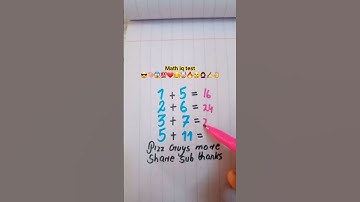 Math iq test
1 + 5 = 16
2 + 6 = 24
3 + 7 =
5 + 11 =
Plzz Guys more
Share Sub thanks